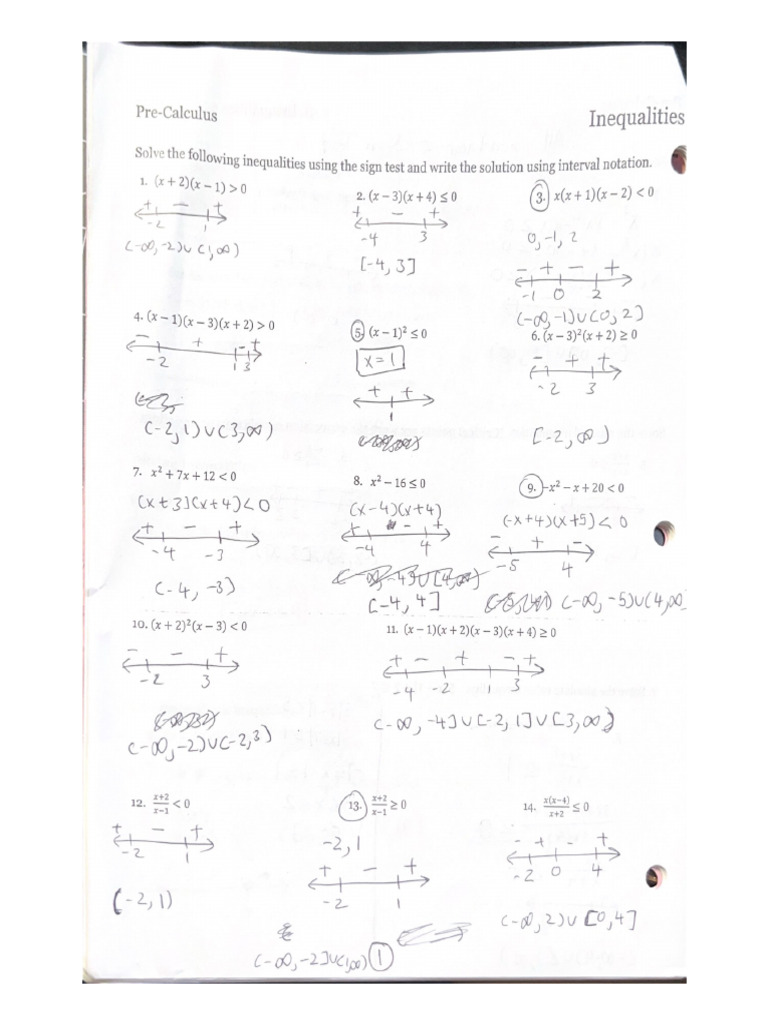 Pre-Calculus
Inequalities
Solve the following inequalities using the sign test and write the solution using interval notation.
1. (x + 2)(x − 1) > 0
+ − +
-2 1
(-∞, -2)∪(1, ∞)
2. (x − 3)(x + 4) ≤ 0
+ − +
-4 3
[-4, 3]
3. x(x + 1)(x − 2) < 0
0, -1, 2
− + − +
-1 0 2
(-∞, -1)∪(0, 2]
4. (x − 1)(x − 3)(x + 2) > 0
− + − +
-2 1 3
(-2, 1)∪(3, ∞)
5. (x − 1)² ≤ 0
x = 1
+ +
1
6. (x − 3)²(x + 2) ≥ 0
− + +
-2 3
[-2, ∞)
7. x² + 7x + 12 < 0
(x+3)(x+4)<0
+ − +
-4 -3
(-4, -3)
8. x² − 16 ≤ 0
(x-4)(x+4)
+ − +
-4 4
[-4, 4]
9. −x² − x + 20 < 0
(-x+4)(x+5)<0
− + −
-5 4
(-∞, -5)∪(4, ∞
10. (x + 2)²(x − 3) < 0
− − +
-2 3
(-∞, -2)∪(-2, 3)
11. (x − 1)(x + 2)(x − 3)(x + 4) ≥ 0
+ − + − +
-4 -2 1 3
(-∞, -4]∪[-2, 1]∪[3, ∞)
12. x+2/x−1 < 0
+ − +
-2 1
(-2, 1)
13. x+2/x−1 ≥ 0
-2, 1
+ − +
-2 1
(-∞, -2]∪(1, ∞) 1
14. x(x−4)/x+2 ≤ 0
− + − +
-2 0 4
(-∞, 2)∪[0, 4]